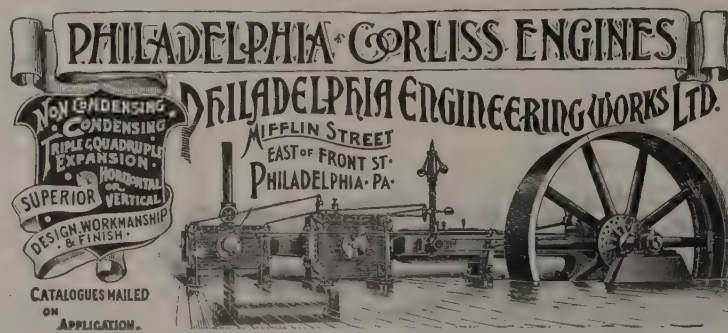 PHILADELPHIA CORLISS ENGINES
PHILADELPHIA ENGINEERING WORKS LTD.
MIFFLIN STREET
EAST OF FRONT ST.
PHILADELPHIA. PA.
NON CONDENSING.
CONDENSING
TRIPLE & QUADRUPLE
EXPANSION.
HORIZONTAL
OR
VERTICAL
SUPERIOR
DESIGN, WORKMANSHIP
& FINISH.
CATALOGUES MAILED
ON
APPLICATION.